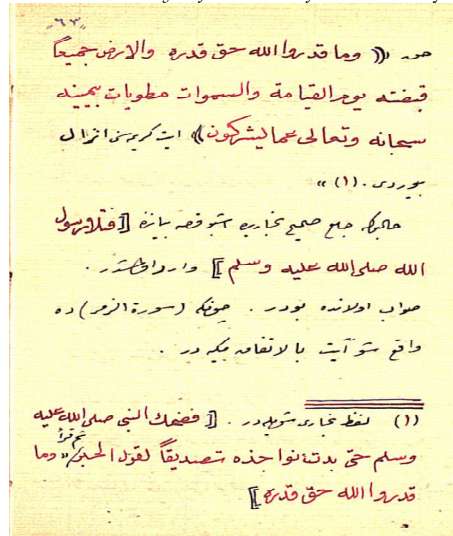 "٦٣"
حوره (( وما قدروا الله حق قدره والارض جميعاً
قبضته يوم القيامة والسموات مطويات بيمينه
سبحانه وتعالى عما يشركون)) ايت كريمه سى انزال
بيوردى. (١) »
حالبوكه جامع صحيح بخاريده اشبو قصه يرينه [فتلا رسول
الله صلى الله عليه وسلم] وارد اولمشدر.
صواب اولانده بودر. چونكه (سورة الزمر) ده
واقع شو آيت بالاتفاق مكيه در.
(١) لفظ بخارى شويله در. [فضحك النبى صلى الله عليه
وسلم حتى بدت نواجذه تصديقاً لقول الحبر ثم قرأ «وما
قدروا الله حق قدره]